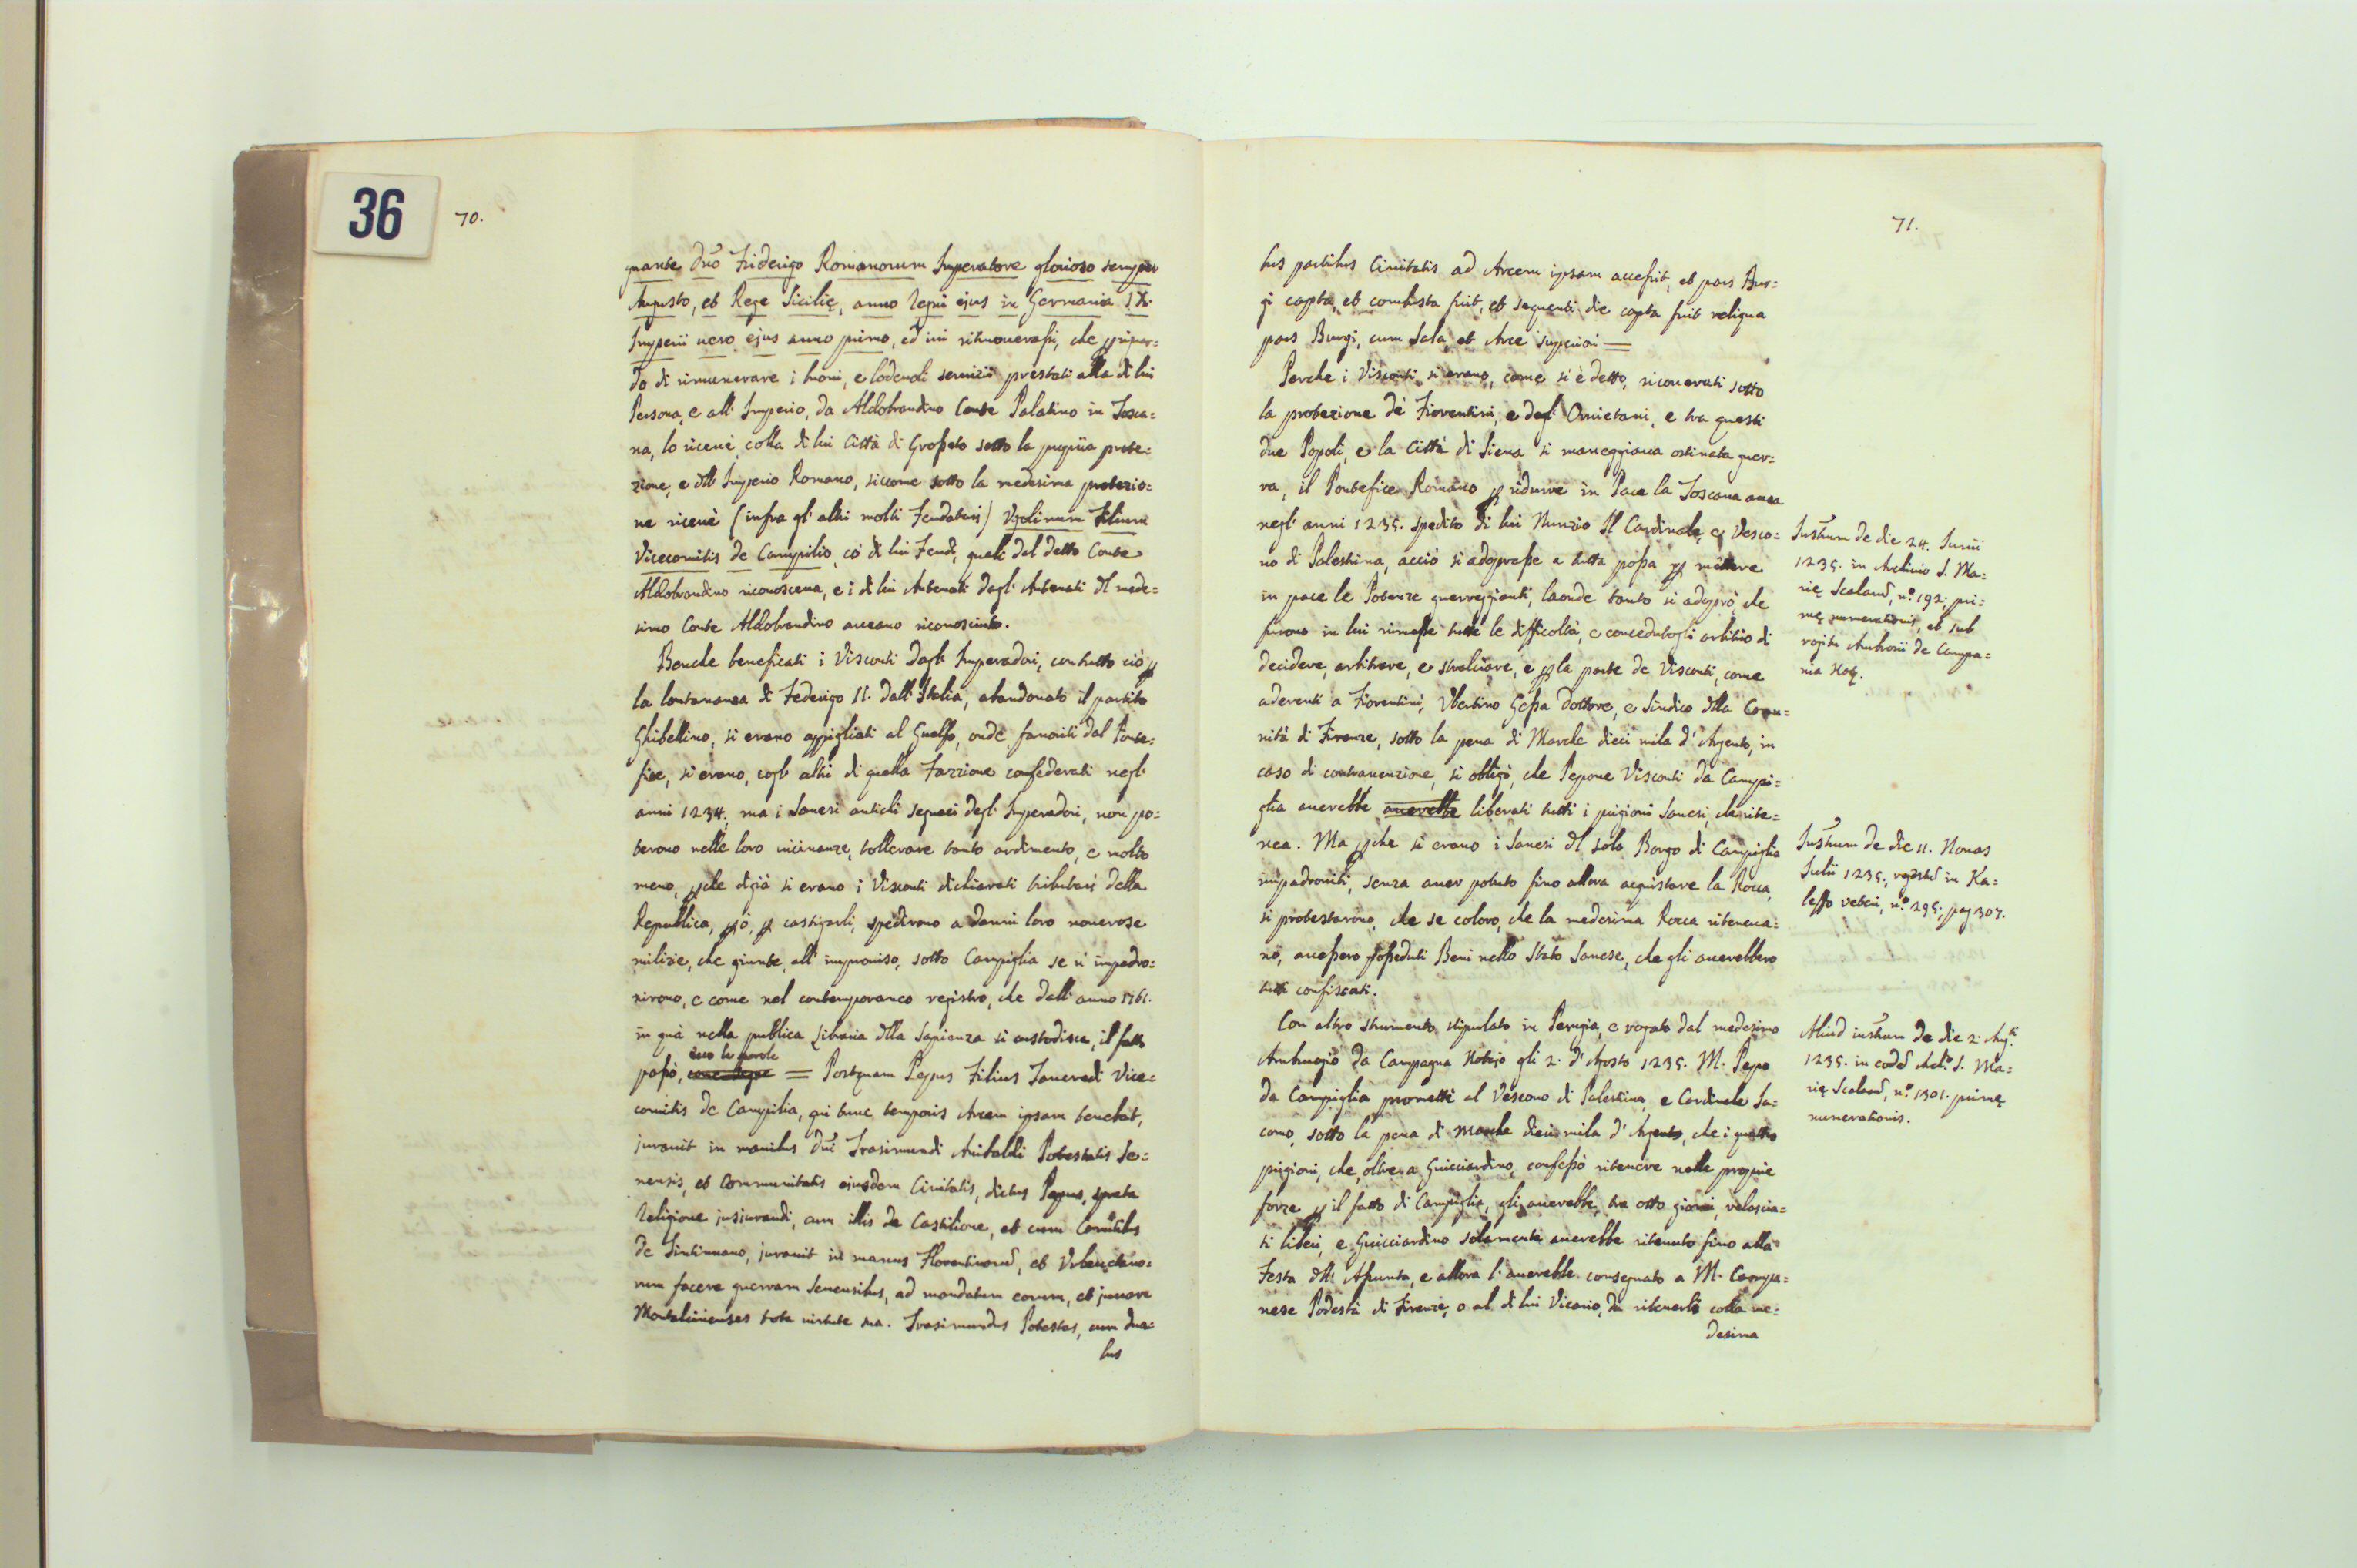 36
70.
gnante Dño Friderigo Romanorum Imperatore glorioso semper
Augusto, et Rege Sicilię, anno Regni ejus in Germania IX.
Imperii uero ejus anno primo, ed iui ritrouerassi, che
do di rimunerare i buoni, e lodeuoli seruizii prestati alla di lui
Persona, e all' Imperio, da Aldobrandino Conte Palatino in Tosca=
na, lo riceuè, colla di lui Città di Grosseto sotto la propria prote=
zione, e dell' Imperio Romano, siccome sotto la medesima protezio=
ne riceuè (infra gl' altri molti Feudatarij) Vgolinum Filium
Vicecomitis de Campilio, co' di lui Feudi, quali dal detto Conte
Aldobrandino riconosceua, e i di lui Antenati dagl' Antenati del mede=
simo Conte Aldobrandino aueano riconosciuto.
Benche beneficati i Visconti dagl' Imperadori, contutto ciò ꝑ
la lontananza di Federigo II. dall' Italia, abandonato il partito
Ghibellino, si erano appigliati al Guelfo, onde fauoriti dal Ponte=
fice, si erano, cogl' altri di quella Fazzione confederati negl'
anni 1234, ma i Sanesi antichi seguaci degl' Imperadori, non po=
terono nelle loro uicinanze, tollerare tanto ardimento, e molto
meno, ꝑche digià si erano i Visconti dichiarati tributarij della
Republica, ꝑò, ꝑ castigarli, spedirono a danni loro nouerose
milizie, che giunte, all' improuiso, sotto Campiglia se ne impadro=
nirono, e come nel contemporaneo registro, che dall' anno 1761.
in quà nella publica Libraria della Sapienza si custodisce, il fatto
ecco le parole
passò, = Postquam Pepus Filius Tancredi Vice=
comitis de Campilia, qui tunc temporis Arcem ipsam tenebat,
jurauit in manibus Dñi Trasimundi Anibaldi Potestatis Se=
nensis, et Communitatis eiusdem Ciuitatis, dictus Pepus, spreta
Religione jusiurandi, cum illis de Castilione, et cum Comitibus
de Sintinnano, jurauit in manus Florentinorũ, et Vrbeuetano=
rum facere guerram Senensibus, ad mandatum eorum, et juuare
Montalcinenses tota uirtute sua. Trasimundus Potestas, cum dua=
bus
71.
bus partibus Ciuitatis ad Arcem ipsam accessit, et pars Bur=
gi capta, et combusta fuit, et sequenti die capta fuit reliqua
pars Burgi, cum Sala, et Arce superiori =
Perche i Visconti si erano, come si è detto, ricouerati sotto
la protezione de' Fiorentini, e degl' Oruietani, e tra questi
due Popoli, e la Città di Siena si maneggiaua ostinata guer=
ra, il Pontefice Romano ꝑ ridurre in Pace la Toscana auea
negl' anni 1235. spedito di lui Nunzio Il Cardinale, e Vesco=
uo di Palestrina, acciò si adoprasse a tutta possa ꝑ mettere
in pace le Potenze guerreggianti, laonde tanto si adoprò, che
furono in lui rimesse tutte le difficoltà, e concedutogli arbitrio di
decidere, arbitrare, e stralciare, e ꝑ la parte de Visconti, come
aderenti a Fiorentini, Vbertino Gessa Dottore, e Sindico della Comu=
nità di Firenze, sotto la pena di Marche dieci mila d' Argento, in
caso di contrauenzione, si obligò, che Pepone Visconti da Campi=
glia auerebbe auerebbe liberati tutti i prigioni Sanesi, che rite=
nea. Ma ꝑche si erano i Sanesi del solo Borgo di Campiglia
impadroniti, senza auer potuto fino allora acquistare la Rocca,
si protestarono, che se coloro, che la medesima Rocca riteneua=
no, auessero posseduti Beni nello Stato Sanese, che gli auerebbero
tutti confiscati.
Con altro strumento stipulato in Perugia, e rogato dal medesimo
Ambrogio da Campagna Notajo gli 2. d' Agosto 1235. M. Pepo
da Campiglia promettè al Vescouo di Palestrina, e Cardinale Ja=
como, sotto la pena di Marche dieci mila d' Argento, che i quattro
prigioni, che, oltre a Guicciardino, confessò ritenere nelle proprie
forze ꝑ il fatto di Campiglia, gli auerebbe, tra otto giorni, rilascia=
ti liberi, e Guicciardino solamente auerebbe ritenuto fino alla
Festa dell' Assunta, e allora l' auerebbe consegnato a M. Compa=
nese Podestà di Firenze, o al di lui Vicario, da ritenerli colla me=
desima
Instrum de die 24. Junii
1235. in Archiuio S. Ma=
rię Scalarũ, nº. 192, pri=
mę numerationis, et sub
rogitu Ambrosii de Campa=
nia Not.
Instrum de die II. Nonas
Julii 1235, regestũ in Ka=
leffo veteri, nº 295, pag 307.
Aliud instrum de die 2. Augti
1235. in eodẽ Archo. S. Ma=
rię Scalarũ, nº. 1301. primę
numerationis.